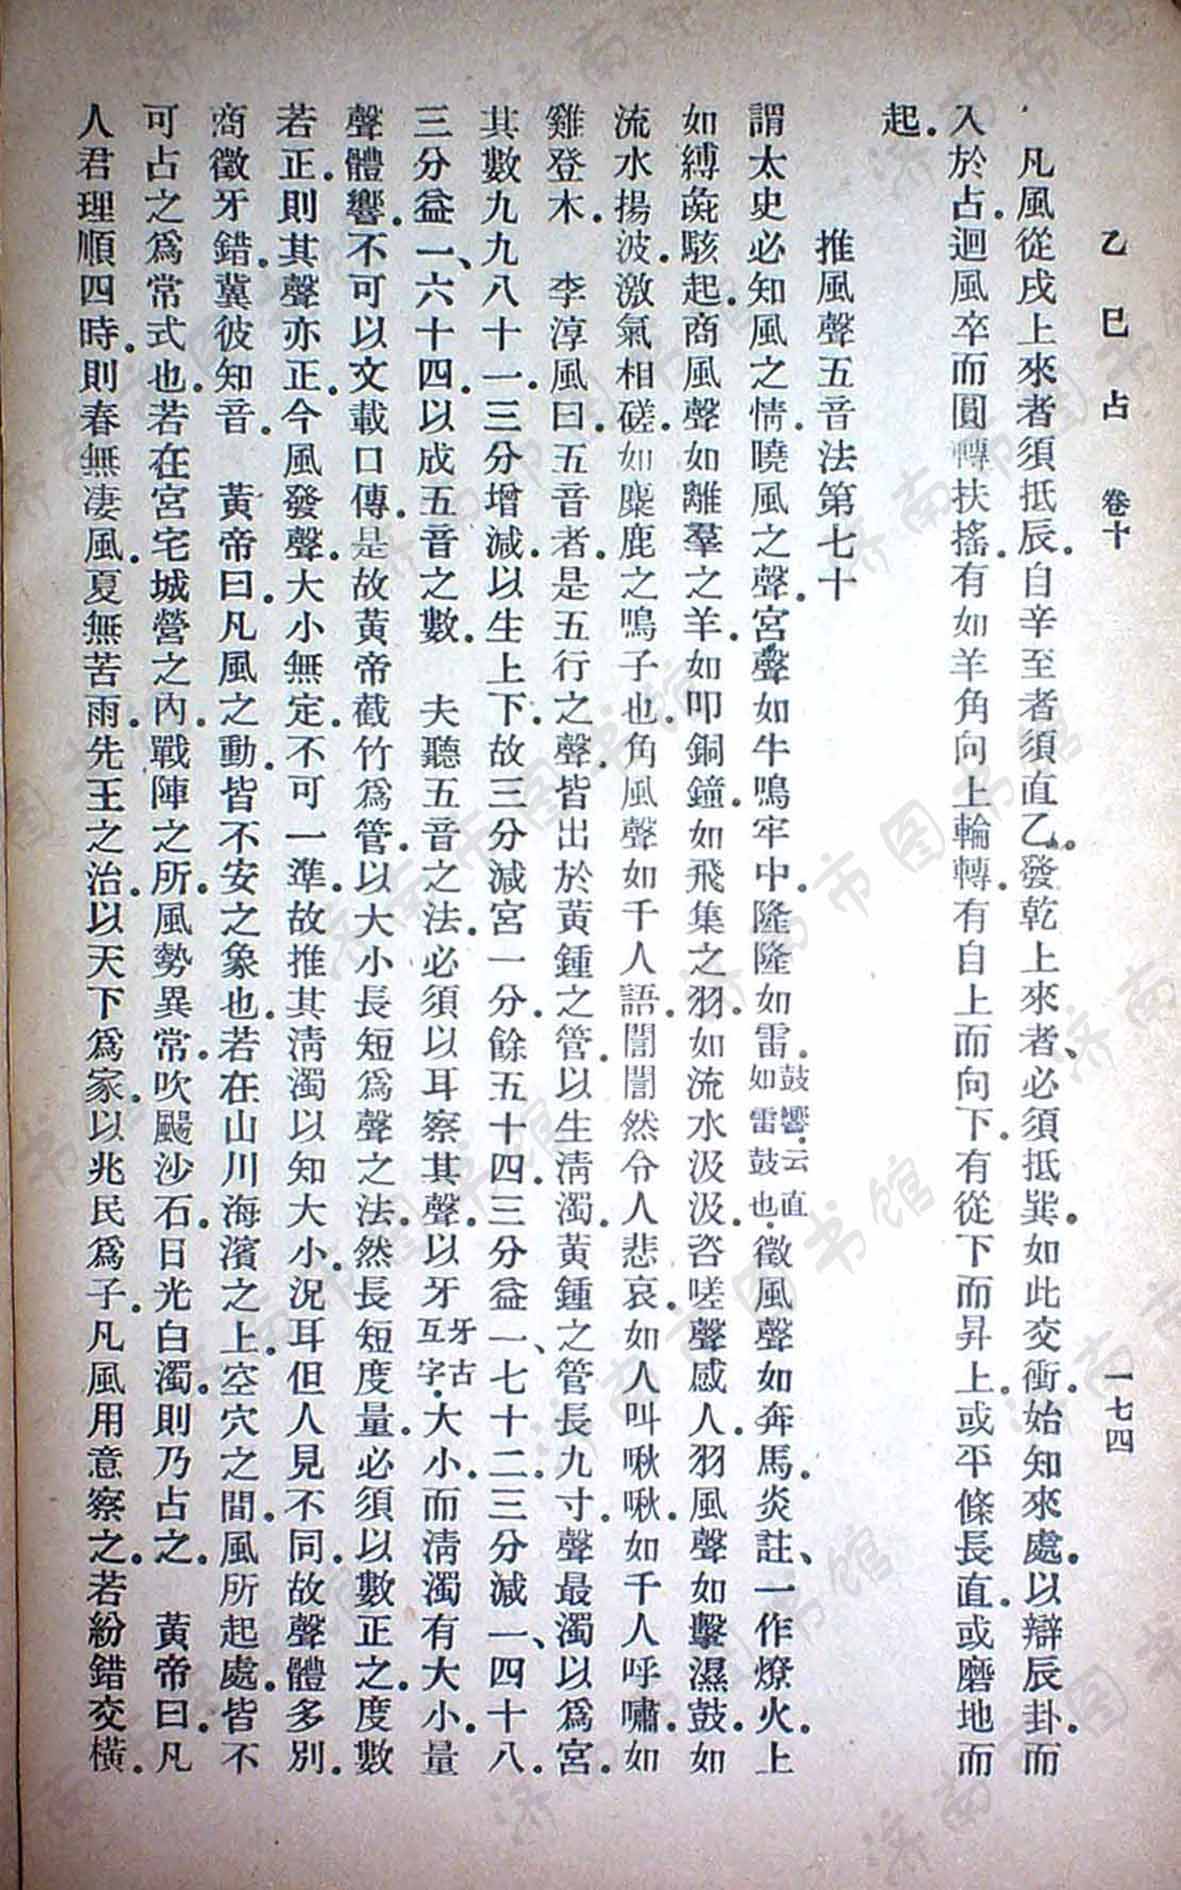 乙巳占 卷十 一七四
凡風從戌上來者須抵辰。自辛至者須直乙。發乾上來者、必須抵巽。如此交衝。始知來處。以辯辰卦。而
入於占。迴風卒而圓轉扶搖。有如羊角向上輪轉。有自上而向下。有從下而昇上。或平條長直。或磨地而
起。
推風聲五音法第七十
謂太史必知風之情。曉風之聲。宮聲如牛鳴牢中。隆隆如雷。鼓響。云直如雷鼓也。徵風聲如奔馬。炎註、一作燎火。上
如縛彘駭起。商風聲如離羣之羊。如叩銅鐘。如飛集之羽。如流水汲汲。咨嗟聲感人。羽風聲如擊濕鼓。如
流水揚波。激氣相磋。如麋鹿之鳴子也。角風聲如千人語。誾誾然令人悲哀。如人叫啾啾。如千人呼嘯。如
雞登木。 李淳風曰。五音者。是五行之聲。皆出於黃鍾之管。以生淸濁。黃鍾之管長九寸。聲最濁以爲宮。
其數九九八十一。三分增減。以生上下。故三分減宮一分。餘五十四。三分益一、七十二。三分減一、四十八。
三分益一、六十四。以成五音之數。 夫聽五音之法。必須以耳察其聲。以牙牙古互字。大小。而淸濁有大小。量
聲體響。不可以文載口傳。是故黃帝截竹爲管。以大小長短爲聲之法。然長短度量。必須以數正之。度數
若正。則其聲亦正。今風發聲。大小無定。不可一準。故推其淸濁以知大小。況耳但人見不同。故聲體多別。
商徵牙錯。冀彼知音。 黃帝曰。凡風之動。皆不安之象也。若在山川海濱之上。空穴之間。風所起處。皆不
可占之爲常式也。若在宮宅城營之內。戰陣之所。風勢異常。吹颺沙石。日光白濁。則乃占之。 黃帝曰。凡
人君理順四時。則春無凄風。夏無苦雨。先王之治。以天下爲家。以兆民爲子。凡風用意察之。若紛錯交橫。